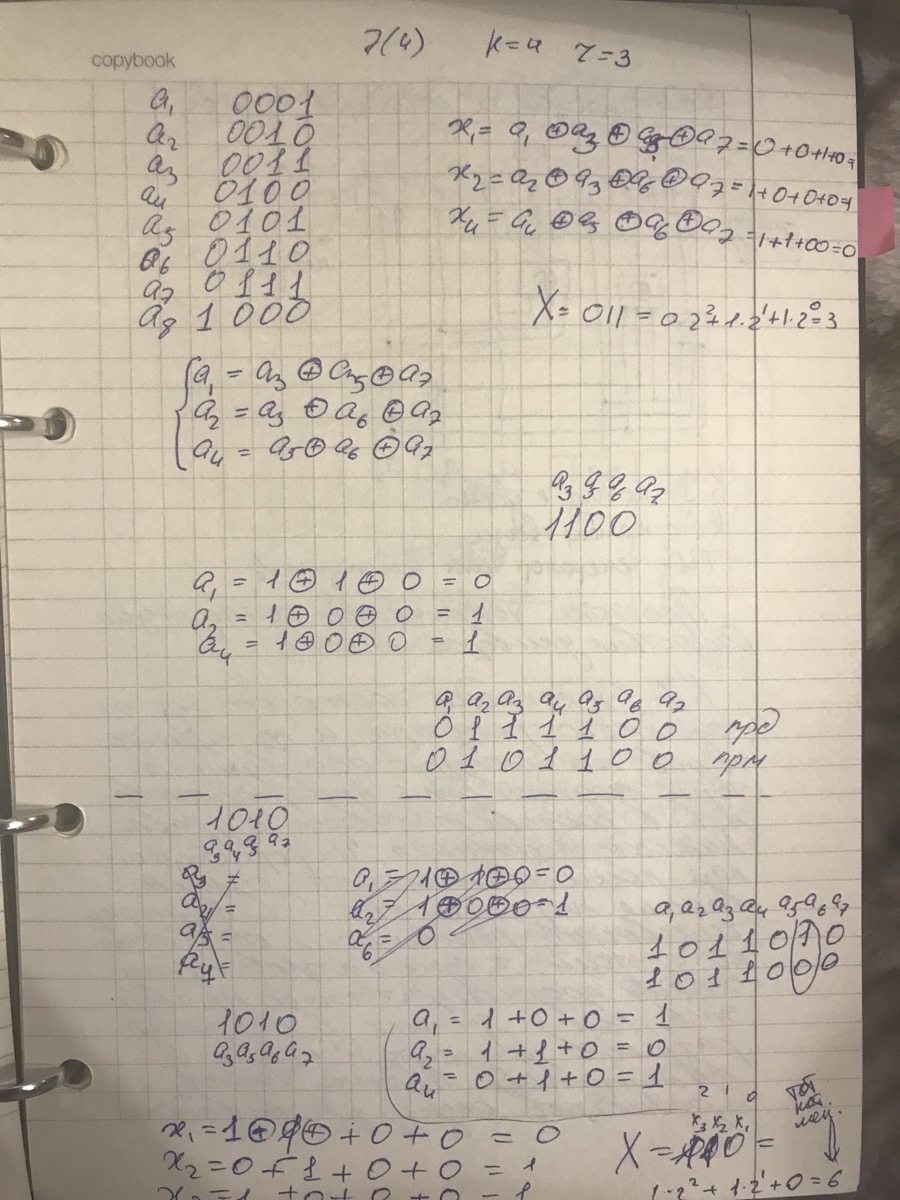 copybook
7(4) k=4 r=3
a₁ 0001
a₂ 0010
a₃ 0011
a₄ 0100
a₅ 0101
a₆ 0110
a₇ 0111
a₈ 1000
x₁= a₁ ⊕a₃ ⊕ a₅ ⊕a₇ =0+0+1+0=
x₂= a₂ ⊕a₃ ⊕a₆ ⊕a₇ =1+0+0+0=1
x₄= a₄ ⊕a₅ ⊕a₆ ⊕a₇ =1+1+00=0
X= 011 = 0 2²+1·2¹+1·2⁰=3
a₁ = a₃ ⊕ a₅ ⊕ a₇
a₂ = a₃ ⊕ a₆ ⊕ a₇
a₄ = a₅ ⊕ a₆ ⊕ a₇
a₃ a₅ a₆ a₇
1100
a₁ = 1 ⊕ 1 ⊕ 0 = 0
a₂ = 1 ⊕ 0 ⊕ 0 = 1
a₄ = 1 ⊕ 0 ⊕ 0 = 1
a₁ a₂ a₃ a₄ a₅ a₆ a₇
0 1 1 1 1 0 0 прд
0 1 0 1 1 0 0 прм
1010
a₃ a₄ a₅ a₇
a₃ =
a₄ =
a₅ =
a₇ =
a₁ = 1⊕1⊕0=0
a₂ = 1⊕0⊕0=1
a₆ = 0
a₁ a₂ a₃ a₄ a₅ a₆ a₇
1 0 1 1 0 1 0
1 0 1 1 0 0 0
1010
a₃ a₅ a₆ a₇
a₁ = 1 +0+0 = 1
a₂ = 1 +1+0 = 0
a₄ = 0 +1+0 = 1
x₁ = 1 ⊕ 1 ⊕ + 0 + 0 = 0
x₂ = 0 + 1 + 0 + 0 = 1
2 1 0
x₃ x₂ x₁
X = 110 =
1·2² + 1·2¹ + 0 = 6